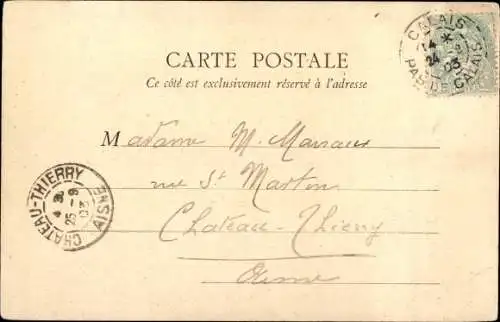 CARTE POSTALE
Ce côté est exclusivement réservé à l'adresse
CALAIS
14 *
24 9
03
PAS-DE-CALAIS
Madame M.
rue St Martin
Chateau-Thierry
Aisne
CHATEAU-THIERRY
4 30
25 -9
03
AISNE